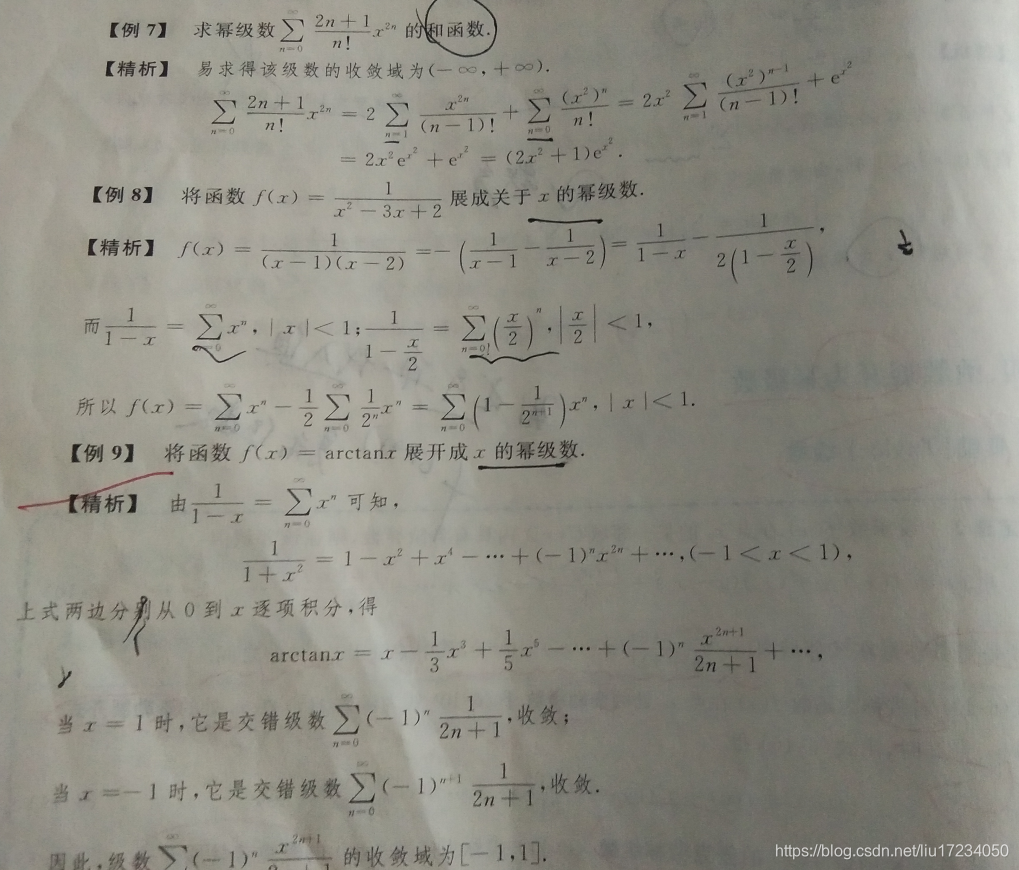 【例 7】 求幂级数 $\sum_{n=0}^{\infty} \frac{2n+1}{n!} x^{2n}$ 的和函数.
【精析】 易求得该级数的收敛域为(−∞,+∞).
$\sum_{n=0}^{\infty} \frac{2n+1}{n!} x^{2n} = 2\sum_{n=1}^{\infty} \frac{x^{2n}}{(n-1)!} + \sum_{n=0}^{\infty} \frac{(x^2)^n}{n!} = 2x^2 \sum_{n=1}^{\infty} \frac{(x^2)^{n-1}}{(n-1)!} + e^{x^2}$
$= 2x^2 e^{x^2} + e^{x^2} = (2x^2+1)e^{x^2}.$
【例 8】 将函数 $f(x) = \frac{1}{x^2-3x+2}$ 展成关于 x 的幂级数.
【精析】 $f(x) = \frac{1}{(x-1)(x-2)} = -\left(\frac{1}{x-1} - \frac{1}{x-2}\right) = \frac{1}{1-x} - \frac{1}{2\left(1-\frac{x}{2}\right)},$
而 $\frac{1}{1-x} = \sum_{n=0}^{\infty} x^n, |x|<1; \frac{1}{1-\frac{x}{2}} = \sum_{n=0}^{\infty} \left(\frac{x}{2}\right)^n, \left|\frac{x}{2}\right|<1,$
所以 $f(x) = \sum_{n=0}^{\infty} x^n - \frac{1}{2}\sum_{n=0}^{\infty} \frac{1}{2^n} x^n = \sum_{n=0}^{\infty} \left(1-\frac{1}{2^{n+1}}\right) x^n, |x|<1.$
【例 9】 将函数 $f(x) = \arctan x$ 展开成 x 的幂级数.
【精析】 由 $\frac{1}{1-x} = \sum_{n=0}^{\infty} x^n$ 可知,
$\frac{1}{1+x^2} = 1 - x^2 + x^4 - \cdots + (-1)^n x^{2n} + \cdots, (-1<x<1),$
上式两边分别从 0 到 x 逐项积分,得
$\arctan x = x - \frac{1}{3}x^3 + \frac{1}{5}x^5 - \cdots + (-1)^n \frac{x^{2n+1}}{2n+1} + \cdots,$
当 x = 1 时,它是交错级数 $\sum_{n=0}^{\infty} (-1)^n \frac{1}{2n+1}$,收敛;
当 x = −1 时,它是交错级数 $\sum_{n=0}^{\infty} (-1)^{n+1} \frac{1}{2n+1}$,收敛.
因此,级数 $\sum^{\infty} (-1)^n \frac{x^{2n+1}}{2n+1}$ 的收敛域为[−1,1].
https://blog.csdn.net/liu17234050